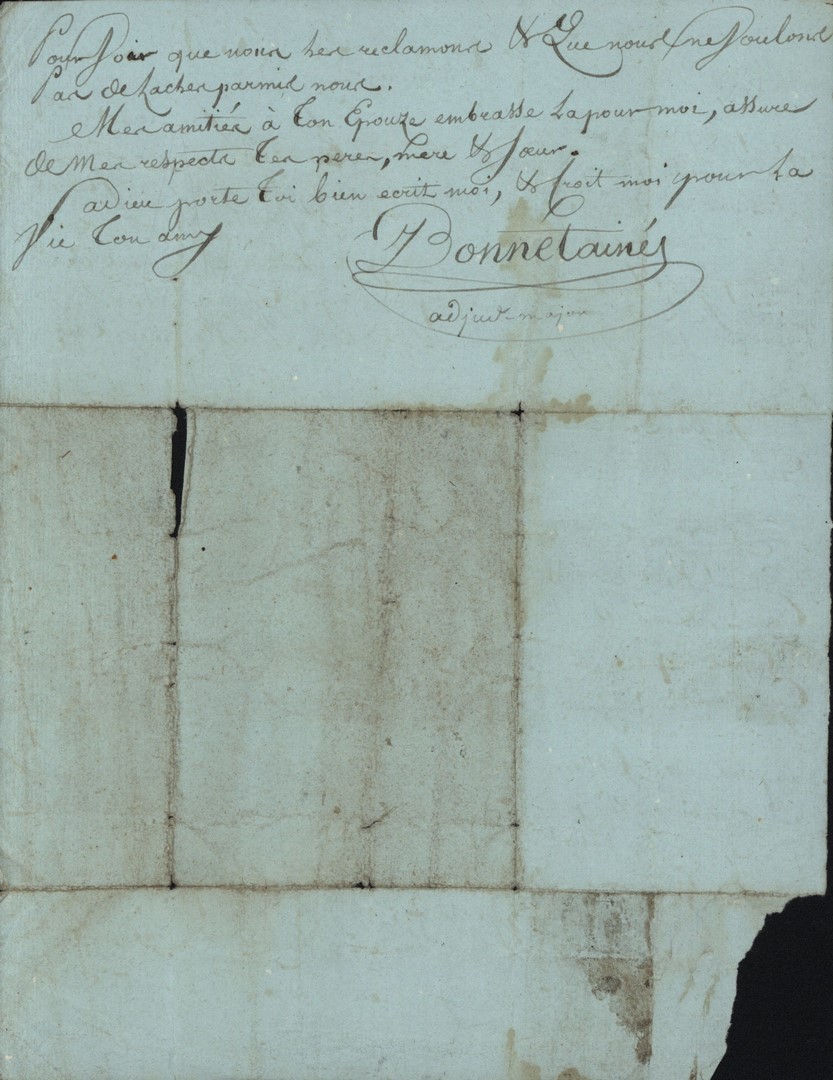 Pour Voir que nous les reclamons & Que nous ne Voulons
Pas de Laches parmis nous.
Mes amitiés à Ton Epouze embrasse La pour moi, assure
de Mes respects Tes peres, mere & Sœur.
adieu porte Toi bien ecrit moi, & Croit moi pour La
Vie Ton amy
Bonnetainés
adjud-major